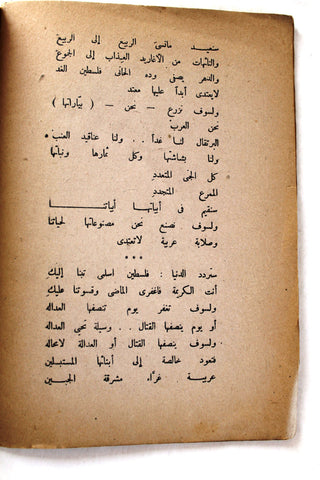 سنعيد مانسى الربيع إلى الربيع
والنائبات من الأغاريد العذاب إلى الجموع
والنهر يصفى وده الحانى فلسطين الغد
لايعتدى أبداً عليها معتد
ولسوف نزرع — نحن — ( بيّاراتها )
نحن العرب
البرتقال لنا غداً .. ولنا عناقيد العنب
ولنا بشاشتها وكل ثمارها ونباتها
كل الجنى المتعدد
الممرع المتجدد
سنقيم فى أبياتها أبياتنا
ولسوف نصنع نحن مصنوعاتها لحياتنا
وصلابة عربية لاتعتدى
***
ستردد الدنيا : فلسطين اسلمى تبنا إليك
أنت الكريمة فاغفرى الماضى وقسوتنا عليك
ولسوف تغفر يوم تنصفها العداله
أو يوم ينصفها القتال .. وسيلة تحيى العداله
ولسوف ينصفها القتال أو العدالة لامحاله
فتعود خالصة إلى أبنائها المستبسلين
عربية غراء مشرقة الجبين